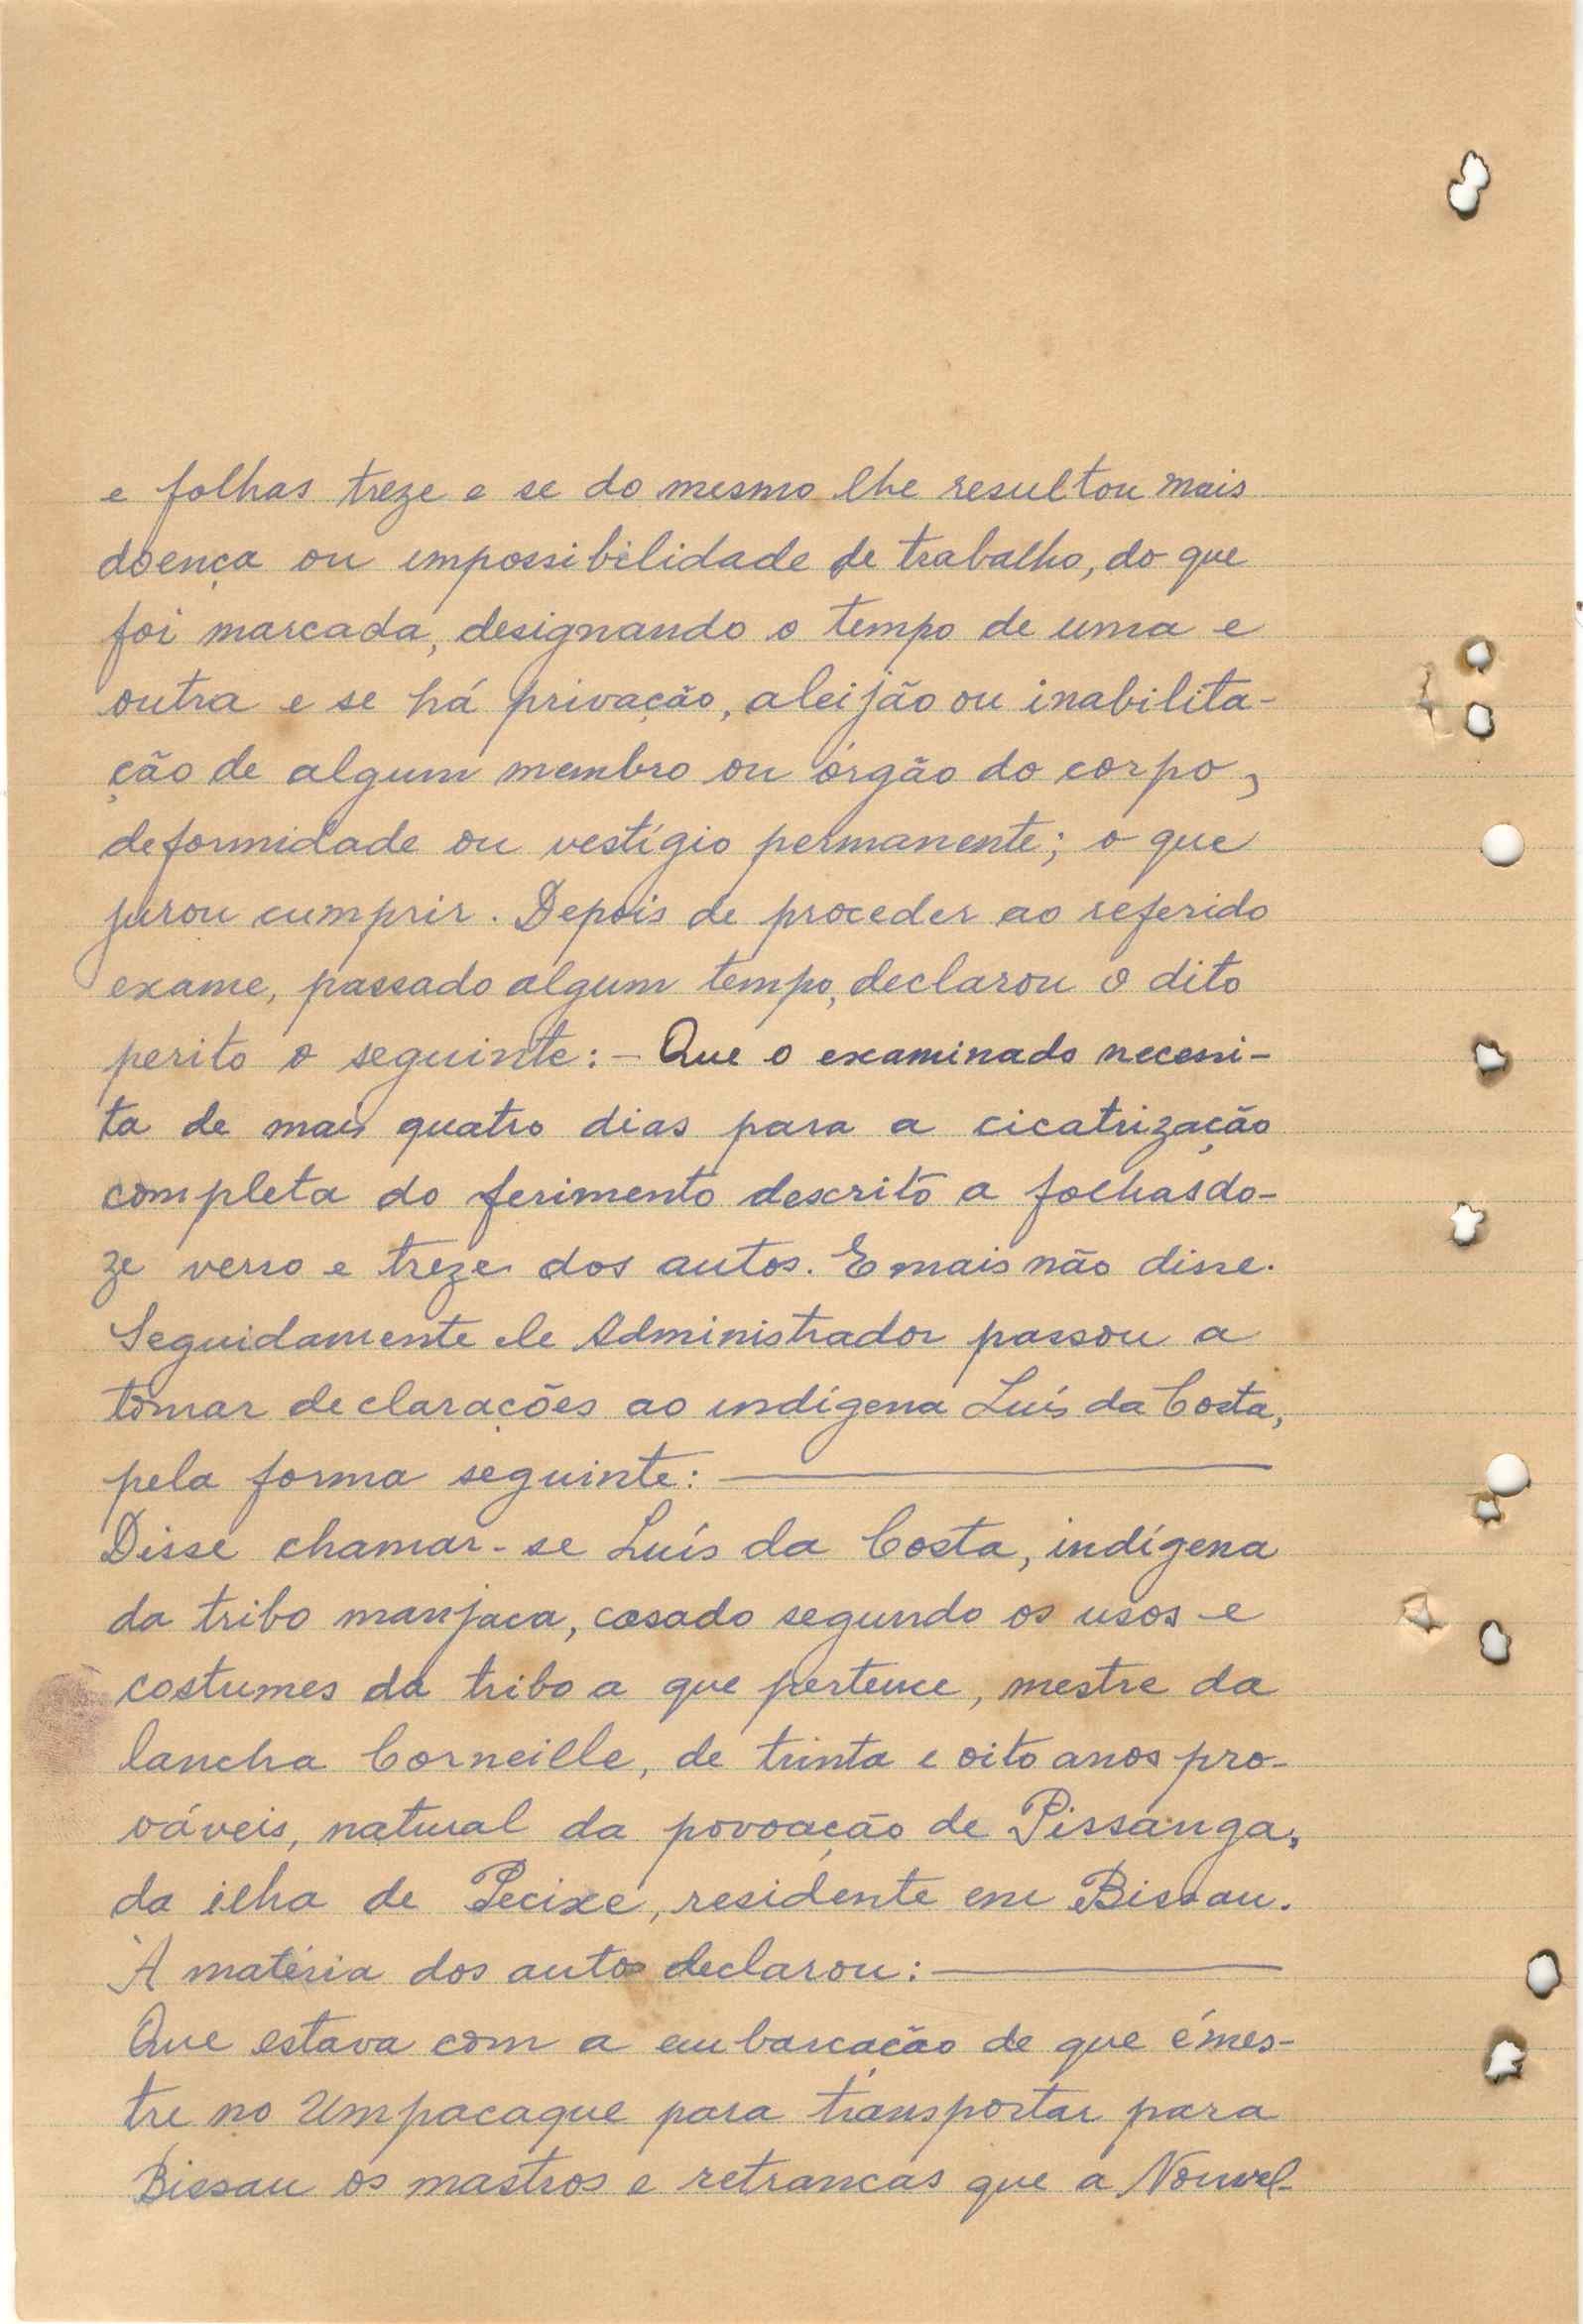 e folhas treze e se do mesmo lhe resultou mais
doença ou impossibilidade de trabalho, do que
foi marcada, designando o tempo de uma e
outra e se há privação, aleijão ou inabilita-
ção de algum membro ou órgão do corpo,
deformidade ou vestígio permanente; o que
jurou cumprir. Depois de proceder ao referido
exame, passado algum tempo, declarou o dito
perito o seguinte: - Que o examinado necessi-
ta de mais quatro dias para a cicatrização
completa do ferimento descrito a folhas do-
ze verso e treze dos autos. E mais não disse.
Seguidamente ele Administrador passou a
tomar declarações ao indígena Luís da Costa,
pela forma seguinte:
Disse chamar-se Luís da Costa, indígena
da tribo manjaca, casado segundo os usos e
costumes da tribo a que pertence, mestre da
lancha Corneille, de trinta e oito anos pro-
váveis, natural da povoação de Pissanga,
da ilha de Pecixe, residente em Bissau.
À matéria dos autos declarou:
Que estava com a embarcação de que é mes-
tre no Umpacaque para transportar para
Bissau os mastros e retrancas que a Nouvel-